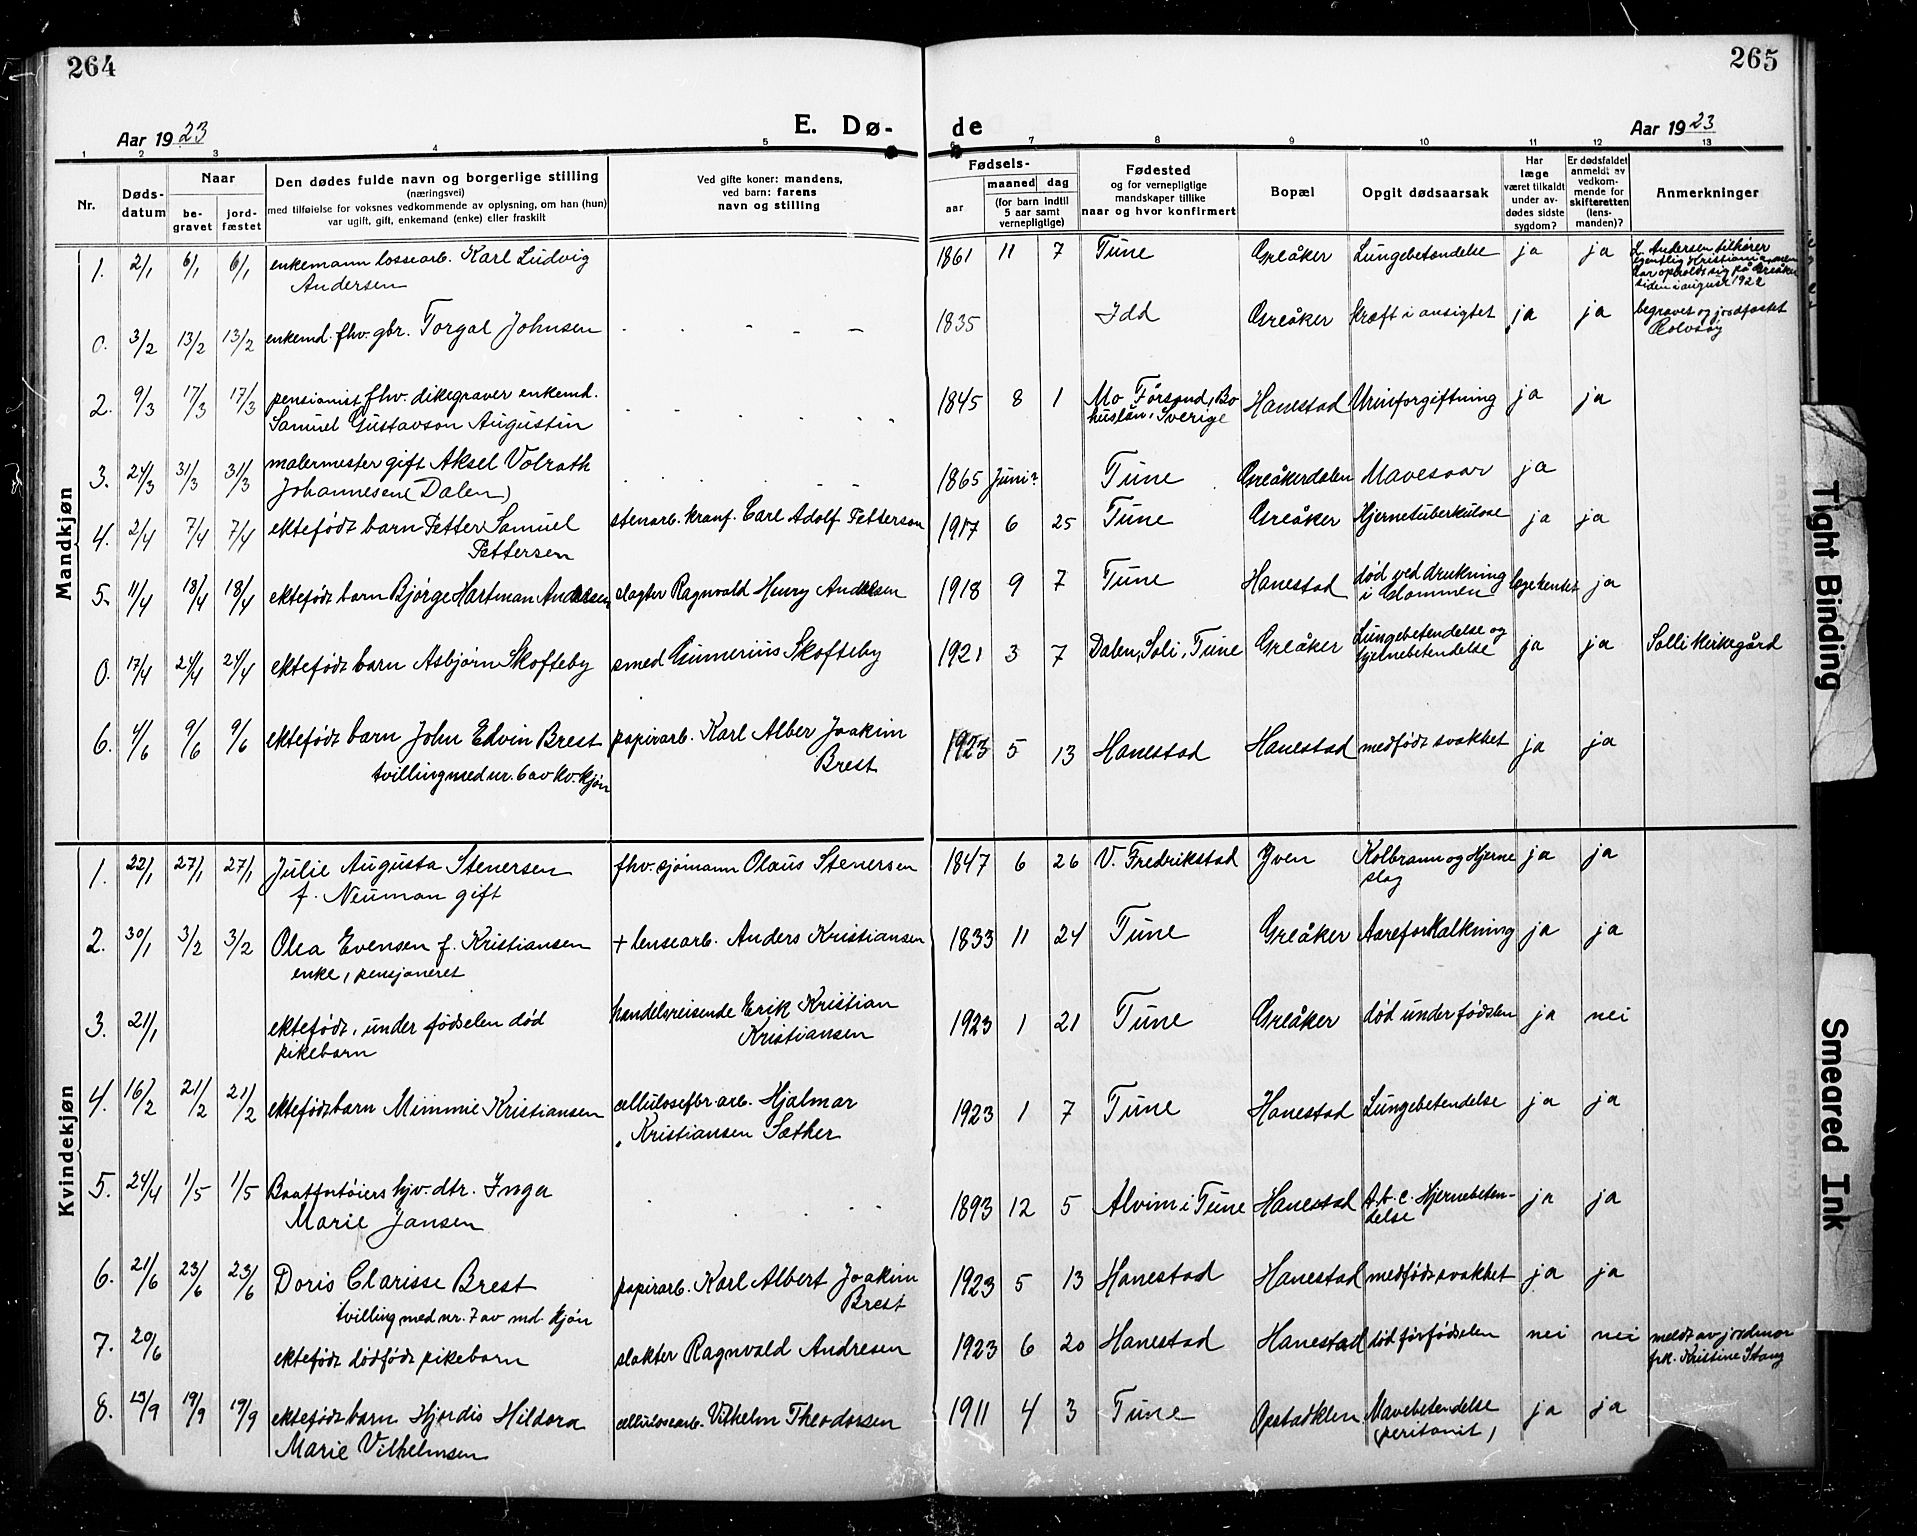 264
265
E. Dø-
de
Aar 1923
Aar 1923
1 2 3 4 5 6 7 8 9 10 11 12 13
Nr.
Døds-
datum
Naar
be-
gravet
jord-
fæstet
Den dødes fulde navn og borgerlige stilling
(næringsvei)
med tilføielse for voksnes vedkommende av oplysning, om han (hun)
var ugift, gift, enkemand (enke) eller fraskilt
Ved gifte koner: mandens,
ved barn: farens
navn og stilling
Fødsels-
aar
maaned
dag
(for barn indtil
5 aar samt
vernepligtige)
Fødested
og for vernepligtige
mandskaper tillike
naar og hvor konfirmert
Bopæl
Opgit dødsaarsak
Har
læge
været tilkaldt
under av-
dødes sidste
sygdom?
Er dødsfaldet
anmeldt av
vedkom-
mende for
skifteretten
(lens-
manden)?
Anmerkninger
Mandkjøn
1. 2/1 6/1 6/1 enkemann lossearb. Karl Ludvig
Andersen
1861 11 7 Tune Greåker Lungebetendelse ja ja L. Andersen tilhører
egentlig Kristiania, men
har opholdt sig på Greåker
siden i august 1922
0. 3/2 13/2 13/2 enkemd. fhv. gbr. Torgal Johnsen - - - - -
1835 Idd Greåker kræft i ansigtet ja ja begravet og jordfæstet
Rolvsøy
2. 9/3 17/3 17/3 pensionist fhv. dikegraver enkemd.
Samuel Gustavson Augustin
1845 8 1 Mo Försond, Bo
huslän, Sverige Hanestad Urinforgiftning ja ja
3. 24/3 31/3 31/3 malermester gift Aksel Volrath
Johannesen (Dalen)
1865 Juni? Tune Greåkerdalen Mavesaar ja
4. 2/4 7/4 7/4 ektefødt barn Petter Samuel
Pettersen
stenarb. kranf. Carl Adolf Petterson
1917 6 25 Tune Greåker Hjernetuberkulose ja ja
5. 11/4 18/4 18/4 ektefødt barn Bjørge Hartman Andresen slagter Ragnvald Henry Andresen
1918 9 7 Tune Hanestad død ved drukning
i Glommen legekentet ja
0. 17/4 24/4 24/4 ektefødt barn Asbjørn Skofteby smed Gunnerius Skofteby
1921 3 7 Dalen, Soli, Tune Greåker Lungebetendelse og
hjernebetendelse ja ja Solli kirkegård
6. 4/6 9/6 9/6 ektefødt barn John Edvin Brest
tvilling med nr. 6 av kv. kjøn
papirarb. Karl Alber Joakim
Brest
1923 5 13 Hanestad Hanestad medfødt svakhet ja ja
Kvindekjøn
1. 22/1 27/1 27/1 Julie Augusta Stenersen
f. Neuman gift
fhv. sjømann Olaus Stenersen
1847 6 26 V. Fredrikstad Yven Kolbrann og Hjerne
slag ja ja
2. 30/1 3/2 3/2 Olea Evensen f. Kristiansen
enke, pensjoneret
+ lensearb. Anders Kristiansen
1833 11 24 Tune Greåker Aareforkalkning ja ja
3. 21/1 ektefødt, under fødselen død
pikebarn
handelsreisende Erik Kristian
Kristiansen
1923 1 21 Tune Greåker død under fødslen ja nei
4. 16/2 21/2 21/2 ektefødt barn Mimmie Kristiansen
cellulosefbr. arb. Hjalmar
Kristiansen Sæther
1923 1 7 Tune Hanestad Lungebetendelse ja ja
5. 24/4 1/5 1/5 Baatfortøiers hjv. dtr. Inga
Marie Jansen
1893 12 5 Alvim i Tune Hanestad A.b.c. Hjernebeten-
delse ja ja
6. 21/6 23/6 23/6 Doris Clarisse Brest
tvilling med nr. 7 av md. kjøn
papirarb. Karl Albert Joakim
Brest
1923 5 13 Hanestad Hanestad medfødt svakhet ja ja
7. 20/6 ektefødt dødfødt pikebarn slakter Ragnvald Andresen
1923 6 20 Hanestad Hanestad død før fødselen nei nei meldt av jordmor
frk. Kristine Stang
8. 13/9 19/9 19/9 ektefødt barn Hjørdis Hildora
Marie Vilhelmsen
cellulosearb. Vilhelm Theodorsen
1911 4 3 Tune Opstadklen Mavebetendelse
(peritonit) ja ja
Tight Binding
Smeared Ink